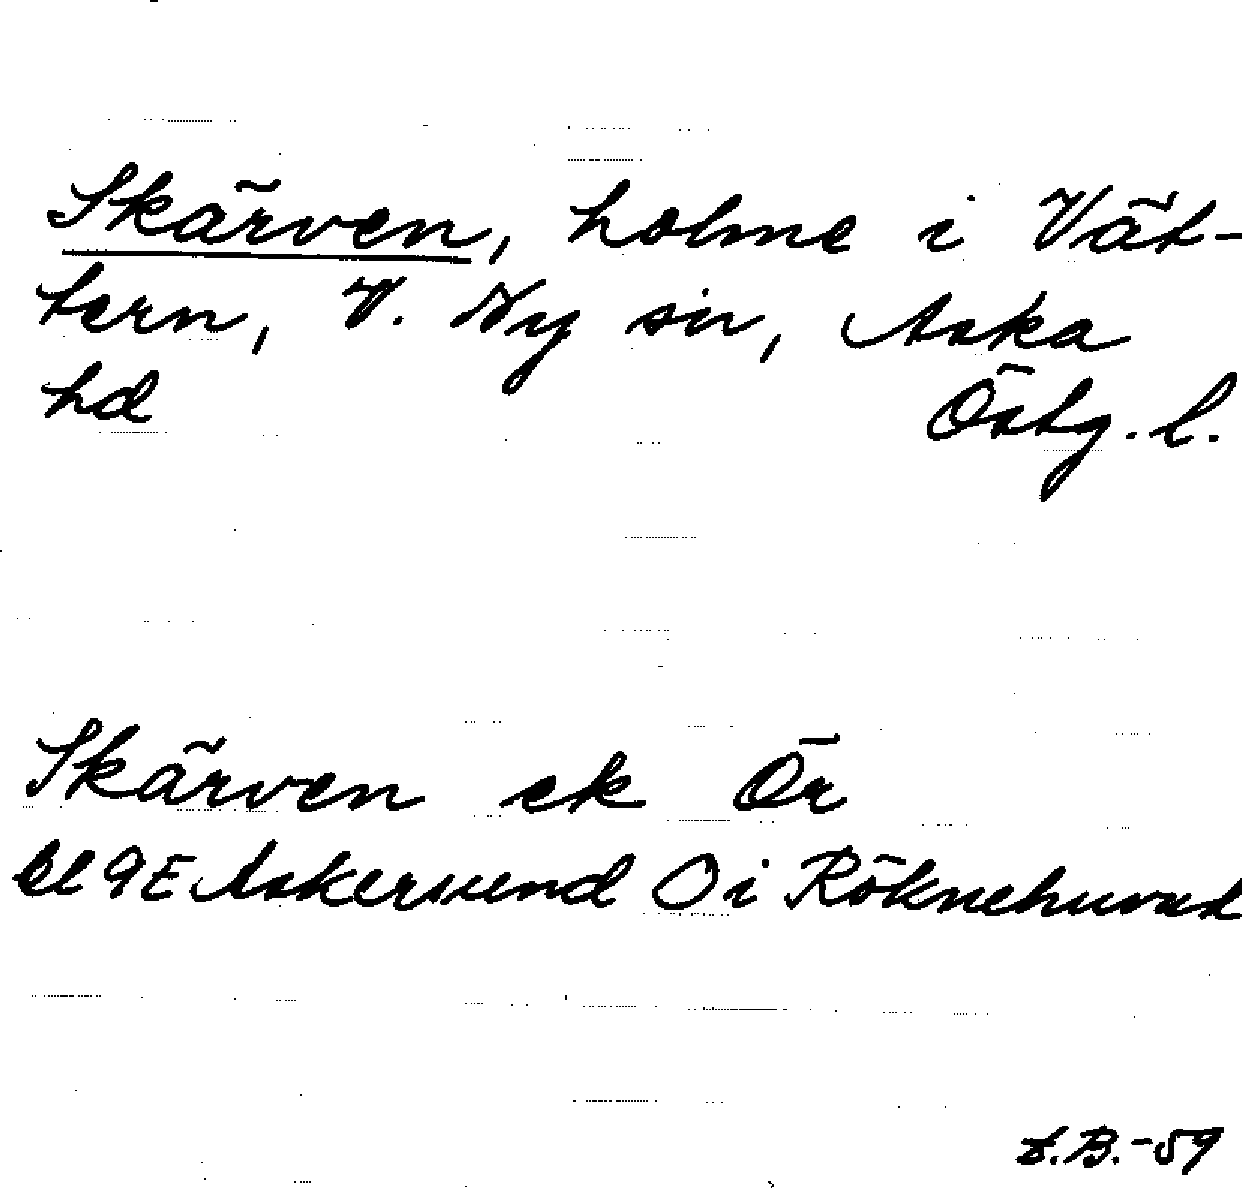 Skärven, holme i Vät-
tern, V. Ny sn, Aska
hd Östg. l.
Skärven ek Ör
bl 9E Askersund O i Röknehuvud
L.B.-59